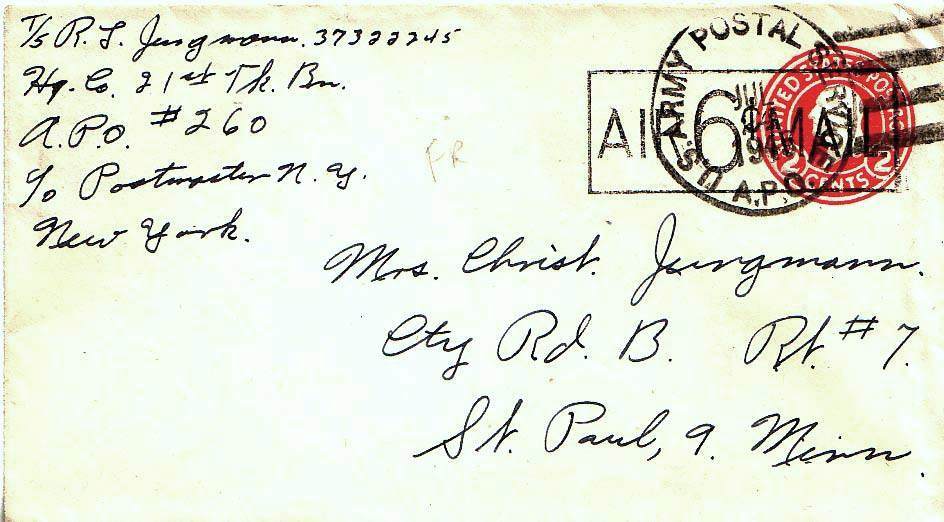 T/5 R. L. Jungmann. 37322245
Hq. Co. 21st Tk. Bn.
A.P.O. #260
c/o Postmaster N.Y.
New York.
FR
U.S. ARMY POSTAL SERVICE
A.P.O.
JUL
194
AIR 6¢ MAIL
UNITED STATES POSTAGE
2 CENTS 2
Mrs. Christ. Jungmann.
Cty Rd. B. Rt. #7.
St. Paul, 9. Minn.